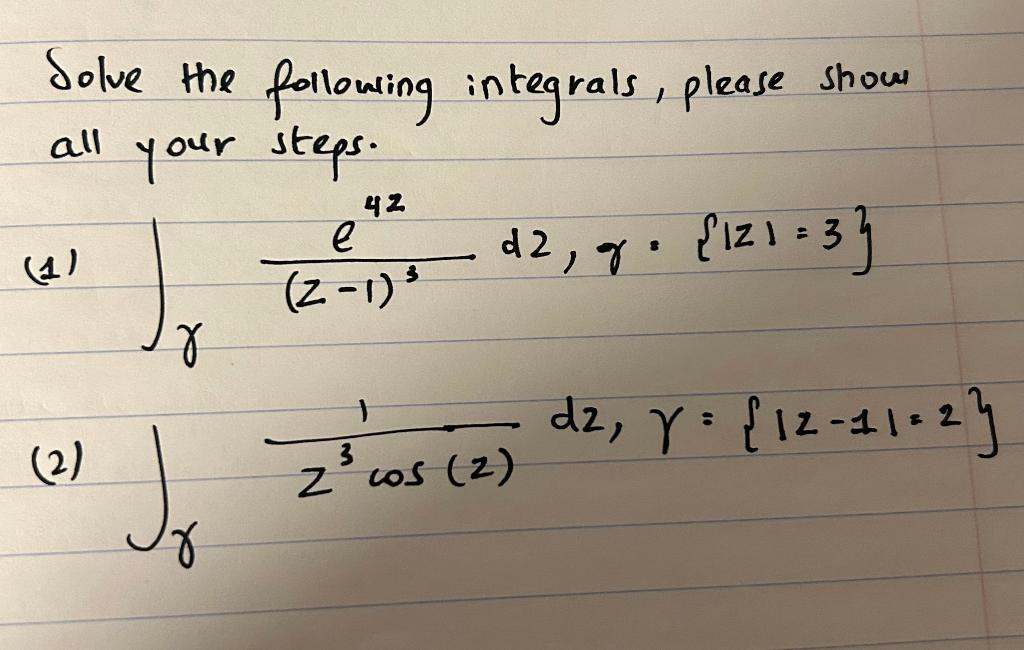 Solve the following integrals, please show
all your steps.
(1) ∫_γ e^{4z} / (z-1)^3 dz, γ = {|z| = 3}
(2) ∫_γ 1 / z^3 cos(z) dz, γ = {|z-1| = 2}